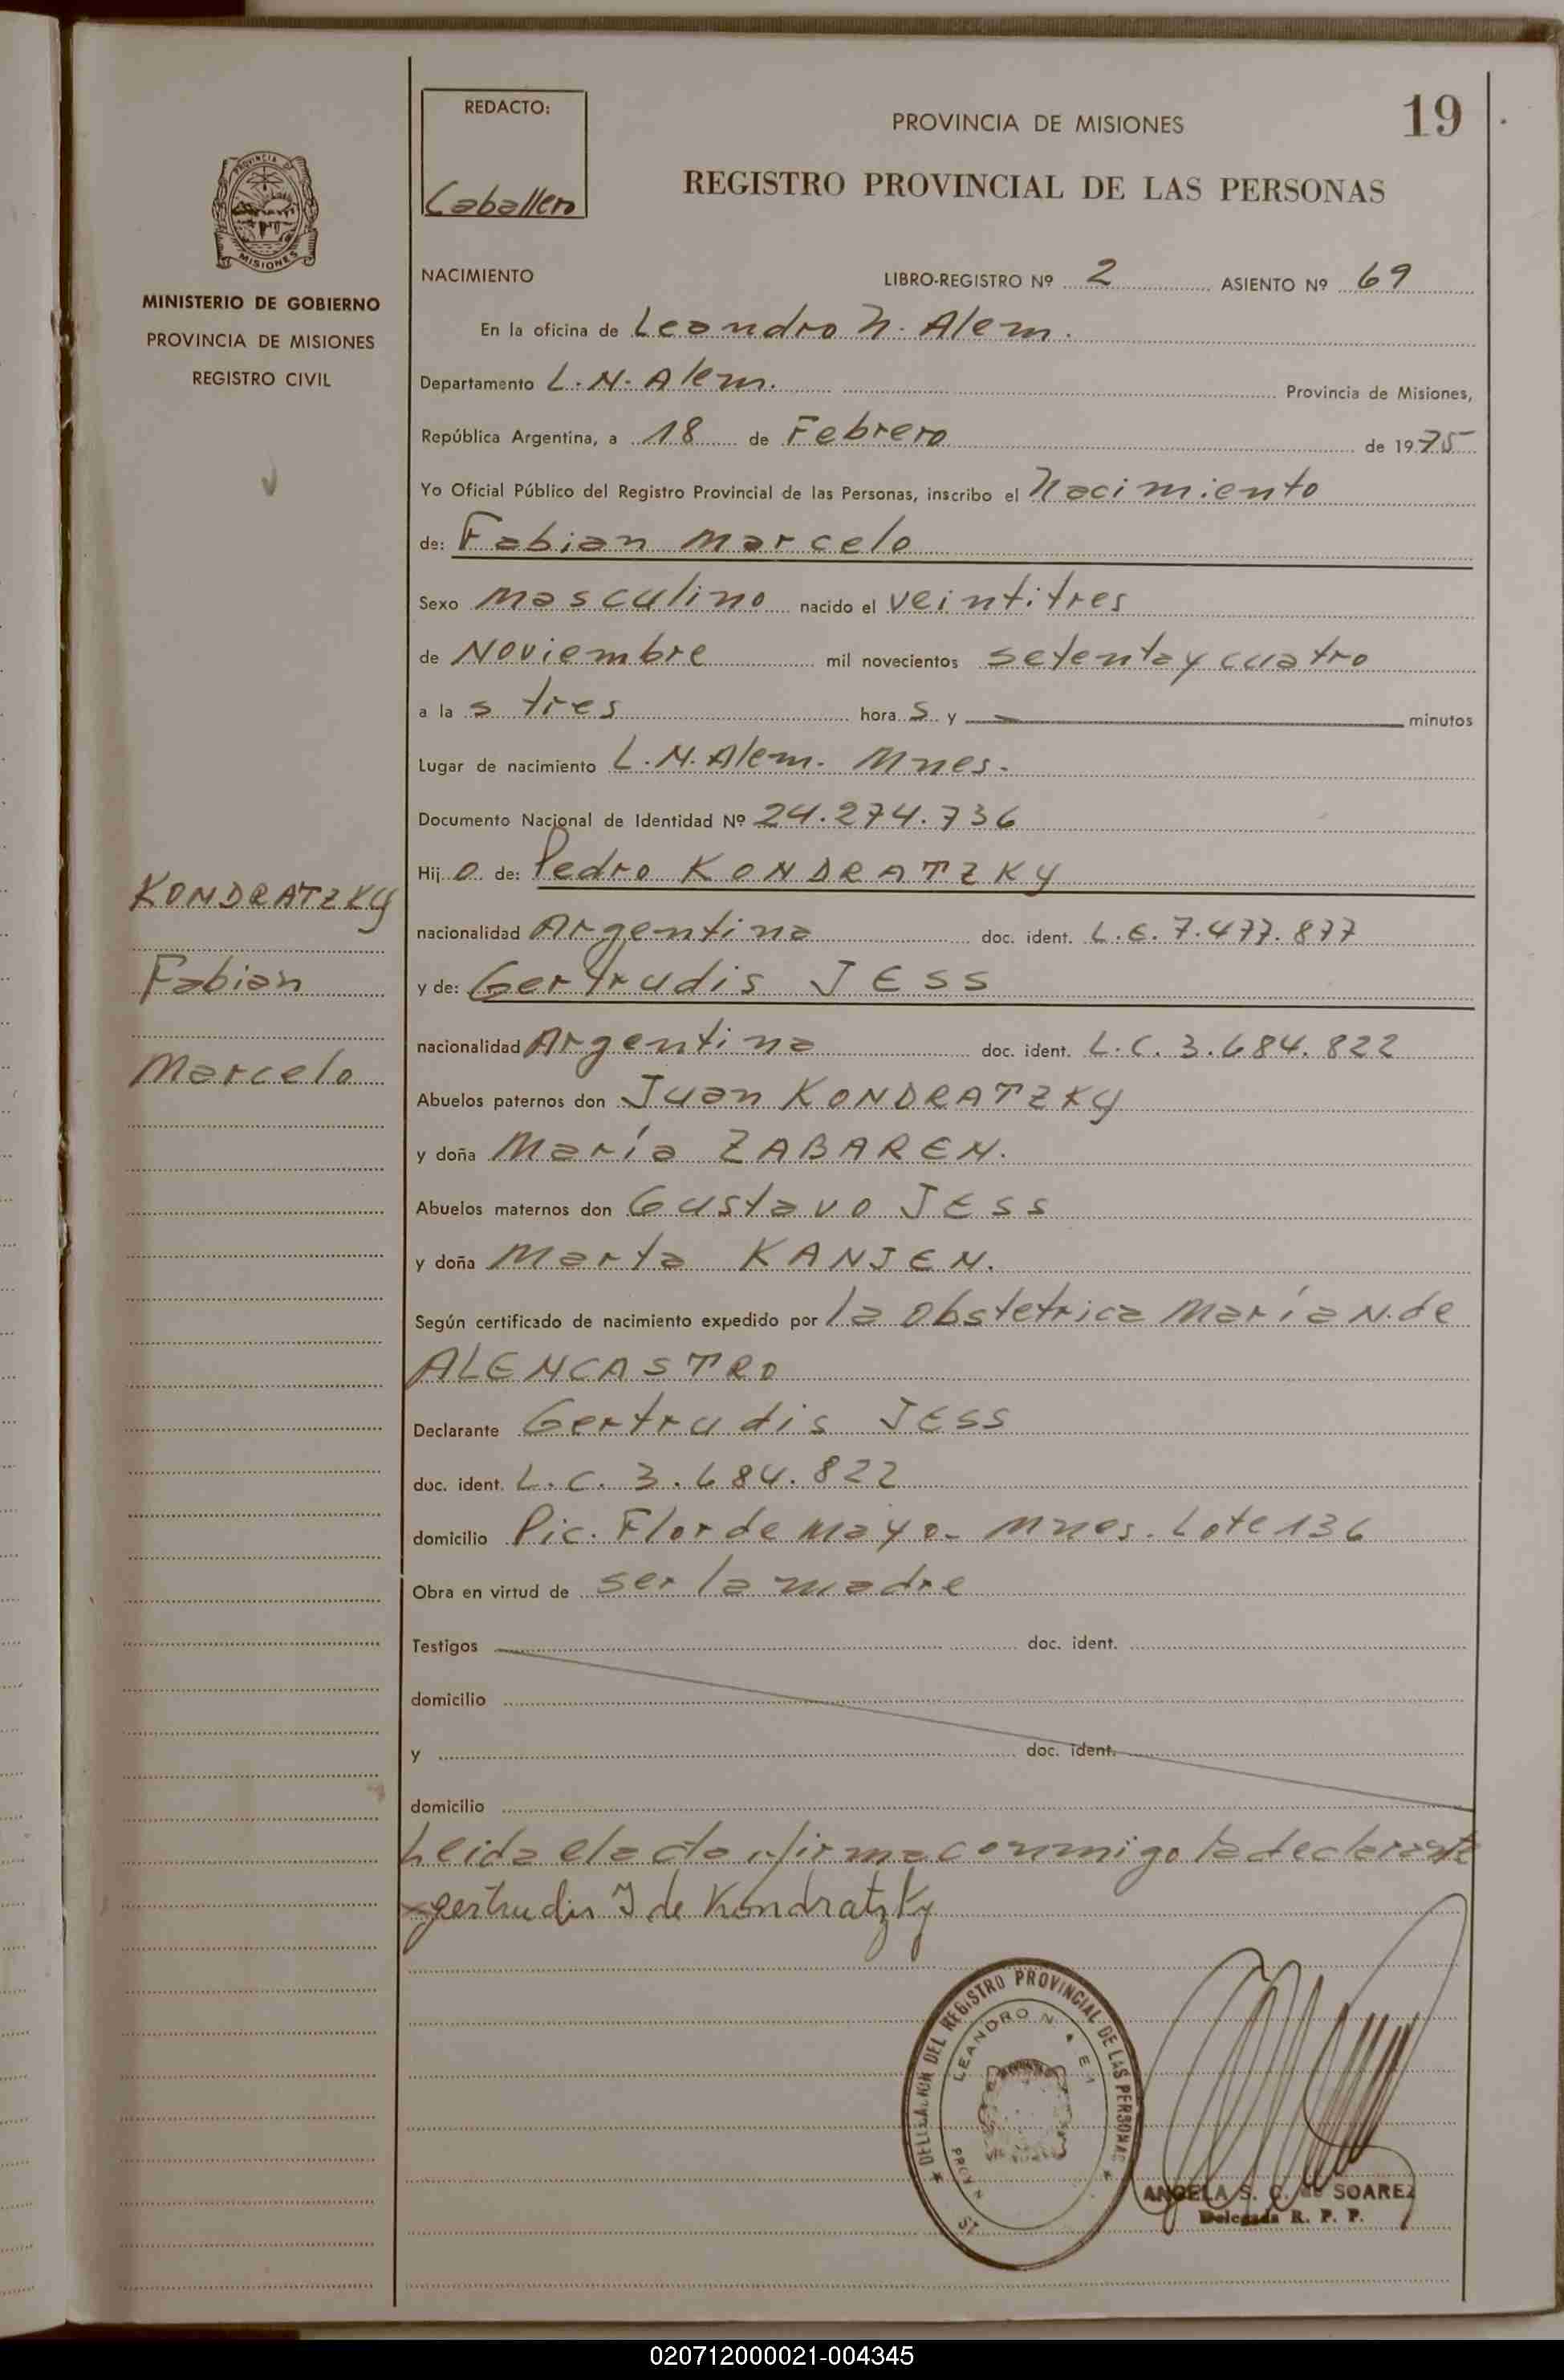 19
REDACTO:
Caballero
PROVINCIA DE MISIONES
REGISTRO PROVINCIAL DE LAS PERSONAS
PROVINCIA DE
MISIONES
MINISTERIO DE GOBIERNO
PROVINCIA DE MISIONES
REGISTRO CIVIL
NACIMIENTO LIBRO-REGISTRO Nº 2 ASIENTO Nº 69
En la oficina de Leandro N. Alem.
Departamento L.N. Alem. Provincia de Misiones,
República Argentina, a 18 de Febrero de 1975
Yo Oficial Público del Registro Provincial de las Personas, inscribo el Nacimiento
de: Fabian Marcelo
Sexo Masculino nacido el veintitres
de Noviembre mil novecientos setenta y cuatro
a las tres horas y — minutos
Lugar de nacimiento L.N. Alem. Mnes.
Documento Nacional de Identidad Nº 24.274.736
Hijo de: Pedro KONDRATZKY
nacionalidad Argentina doc. ident. L.E. 7.477.877
y de: Gertrudis JESS
nacionalidad Argentina doc. ident. L.C. 3.684.822
Abuelos paternos don Juan KONDRATZKY
y doña María ZABAREN.
Abuelos maternos don Gustavo JESS
y doña Marta KANJEN.
Según certificado de nacimiento expedido por la Obstetrica María N. de
ALENCASTRO
Declarante Gertrudis JESS
doc. ident. L.C. 3.684.822
domicilio Pic. Flor de Mayo - Mnes. Lote 136
Obra en virtud de ser la madre
Testigos doc. ident.
domicilio
y doc. ident.
domicilio
Leida el acta firma conmigo la declarante
Gertrudis J de Kondratzky
KONDRATZKY
Fabian
Marcelo
DELEGACION DEL REGISTRO PROVINCIAL DE LAS PERSONAS
LEANDRO N. 
ANGELA S. C. de SOAREZ
Delegada R. P. P.
020712000021-004345